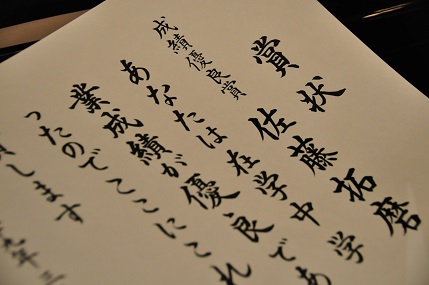 賞状
佐藤拓磨
成績優良賞
あなたは在学中学
業成績が優良であ
ったのでここにこれ
します
年三